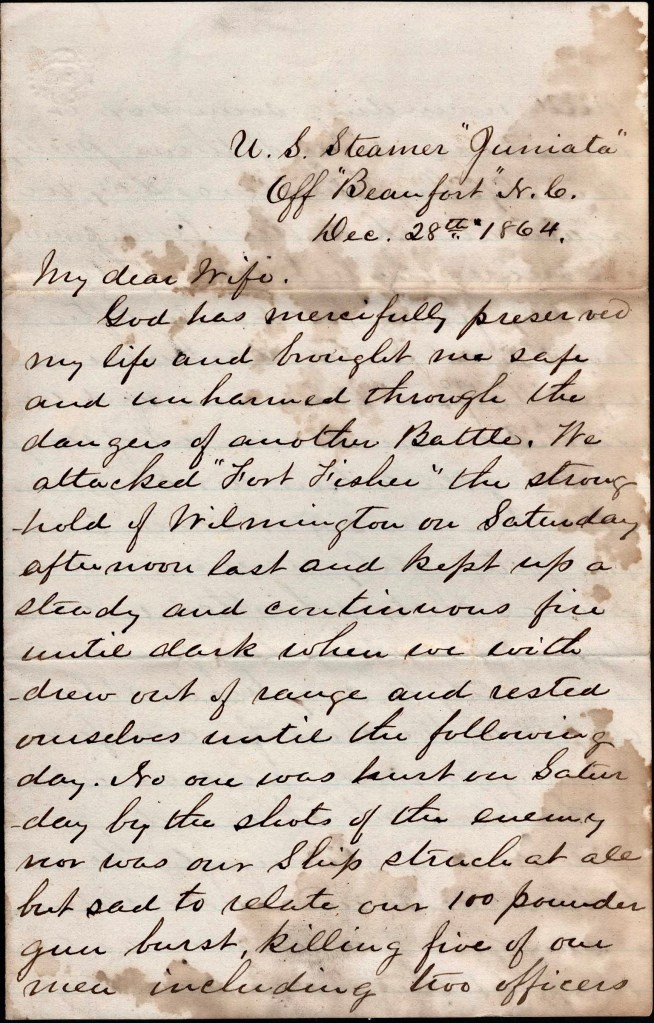 U. S. Steamer "Juniata"
Off "Beaufort" N. C.
Dec. 28th 1864.
My dear Wife.
God has mercifully preserved
my life and brought me safe
and unharmed through the
dangers of another Battle. We
attacked "Fort Fisher" the strong
-hold of Wilmington on Saturday
afternoon last and kept up a
steady and continuous fire
until dark when we with
-drew out of range and rested
ourselves until the following
day. No one was hurt on Satur
-day by the shots of the enemy
nor was our Ship struck at all
but sad to relate our 100 pounder
gun burst, killing five of our
men including two officers